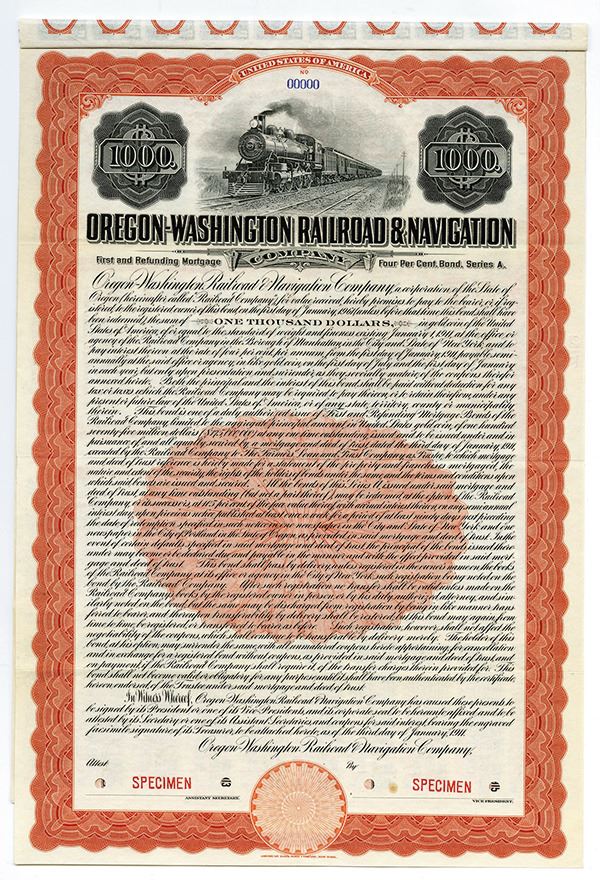 UNITED STATES OF AMERICA
No
00000
1000. 1000.
OREGON-WASHINGTON RAILROAD & NAVIGATION
COMPANY
First and Refunding Mortgage Four Per Cent. Bond, Series A.
Oregon-Washington Railroad & Navigation Company, a corporation of the State of
Oregon (hereinafter called Railroad Company), for value received, hereby promises to pay to the bearer, or, if reg-
istered, to the registered owner of this bond, on the first day of January, 1961 (unless before that time this bond shall have
been redeemed), the sum of ONE THOUSAND DOLLARS, in gold coin of the United
States of America, of or equal to the standard of weight and fineness existing January 1, 1911, at the office or
agency of the Railroad Company in the Borough of Manhattan, in the City and State of New York, and to
pay interest thereon at the rate of four per cent. per annum from the first day of January, 1911, payable semi-
annually at the said office or agency, in like gold coin, on the first day of July and the first day of January
in each year, but only upon presentation and surrender, as they severally mature, of the coupons therefor
annexed hereto. Both the principal and the interest of this bond shall be paid without deduction for any
tax or taxes which the Railroad Company may be required to pay thereon, or to retain therefrom, under any
present or future law of the United States of America, or of any state, territory, county or municipality
therein. This bond is one of a duly authorized issue of First and Refunding Mortgage Bonds of the
Railroad Company, limited to an aggregate principal amount in United States gold coin, of one hundred
seventy-five million dollars ($175,000,000) at any one time outstanding, issued and to be issued under and in
pursuance of, and all equally secured by a mortgage and deed of trust, dated the third day of January, 1911,
executed by the Railroad Company to The Farmers' Loan and Trust Company, as Trustee, to which mortgage
and deed of trust reference is hereby made for a statement of the property and franchises mortgaged, the
nature and extent of the security, the rights of the holders of bonds under the same, and the terms and conditions upon
which said bonds are issued and secured. All the bonds of this Series A issued under said mortgage and
deed of trust, at any time outstanding (but not a part thereof), may be redeemed at the option of the Railroad
Company or its successors, at 105 per cent. of the face value thereof with accrued interest thereon, on any semi-annual
interest day, upon previous notice published at least once in each of a period of at least ninety days next preceding
the date of redemption specified in such notice, in one newspaper in the City and State of New York and one
newspaper in the City of Portland in the State of Oregon, as provided in said mortgage and deed of trust. In the
event of certain defaults specified in said mortgage and deed of trust, the principal of the bonds issued there-
under may become or be declared due and payable in the manner and with the effect provided in said mort-
gage and deed of trust. This bond shall pass by delivery, unless registered in the owner's name on the books
of the Railroad Company at its office or agency in the City of New York, such registration being noted on the
bond by the Railroad Company. After such registration no transfer shall be valid unless made on the
Railroad Company's books by the registered owner in person, or by his duly authorized attorney, and sim-
ilarly noted on the bond; but the same may be discharged from registration by being in like manner trans-
ferred to bearer, and thereupon transferability by delivery shall be restored; but this bond may again, from
time to time, be registered, or transferred to bearer, as before. Such registration, however, shall not affect the
negotiability of the coupons, which shall continue to pass by delivery merely. The holder of this
bond, at his option, may surrender the same, with all unmatured coupons hereto appertaining, for cancellation
and in exchange for a registered bond without coupons, as provided in said mortgage and deed of trust, and
on payment, if the Railroad Company shall require it, of the transfer charges therein provided for. This
bond shall not become valid or obligatory for any purpose until it shall have been authenticated by the certificate
hereon endorsed, of the Trustee under said mortgage and deed of trust.
In Witness Whereof, Oregon-Washington Railroad & Navigation Company has caused these presents to
be signed by its President or one of its Vice-Presidents, and its corporate seal to be hereunto affixed and to be
attested by its Secretary or one of its Assistant Secretaries, and coupons for said interest, bearing the engraved
facsimile signature of its Treasurer, to be attached hereto, as of the third day of January, 1911.
Oregon-Washington Railroad & Navigation Company,
Attest By
SPECIMEN SPECIMEN
ASSISTANT SECRETARY. VICE PRESIDENT.